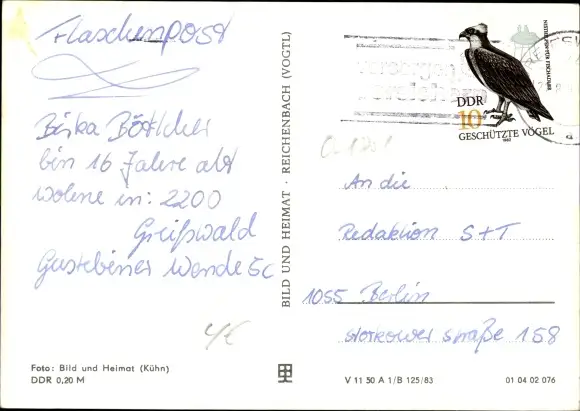 Flaschenpost
Birka Böttcher
bin 16 Jahre alt
wohne in: 2200
Greifswald
Gustebiner Wende 5c
4/€
Foto: Bild und Heimat (Kühn)
DDR 0,20 M
BILD UND HEIMAT · REICHENBACH (VOGTL)
DDR
10
GESCHÜTZTE VÖGEL
1982
An die
Redaktion S+T
1055 Berlin
Storkower Straße 158
V 11 50 A 1/B 125/83
01 04 02 076